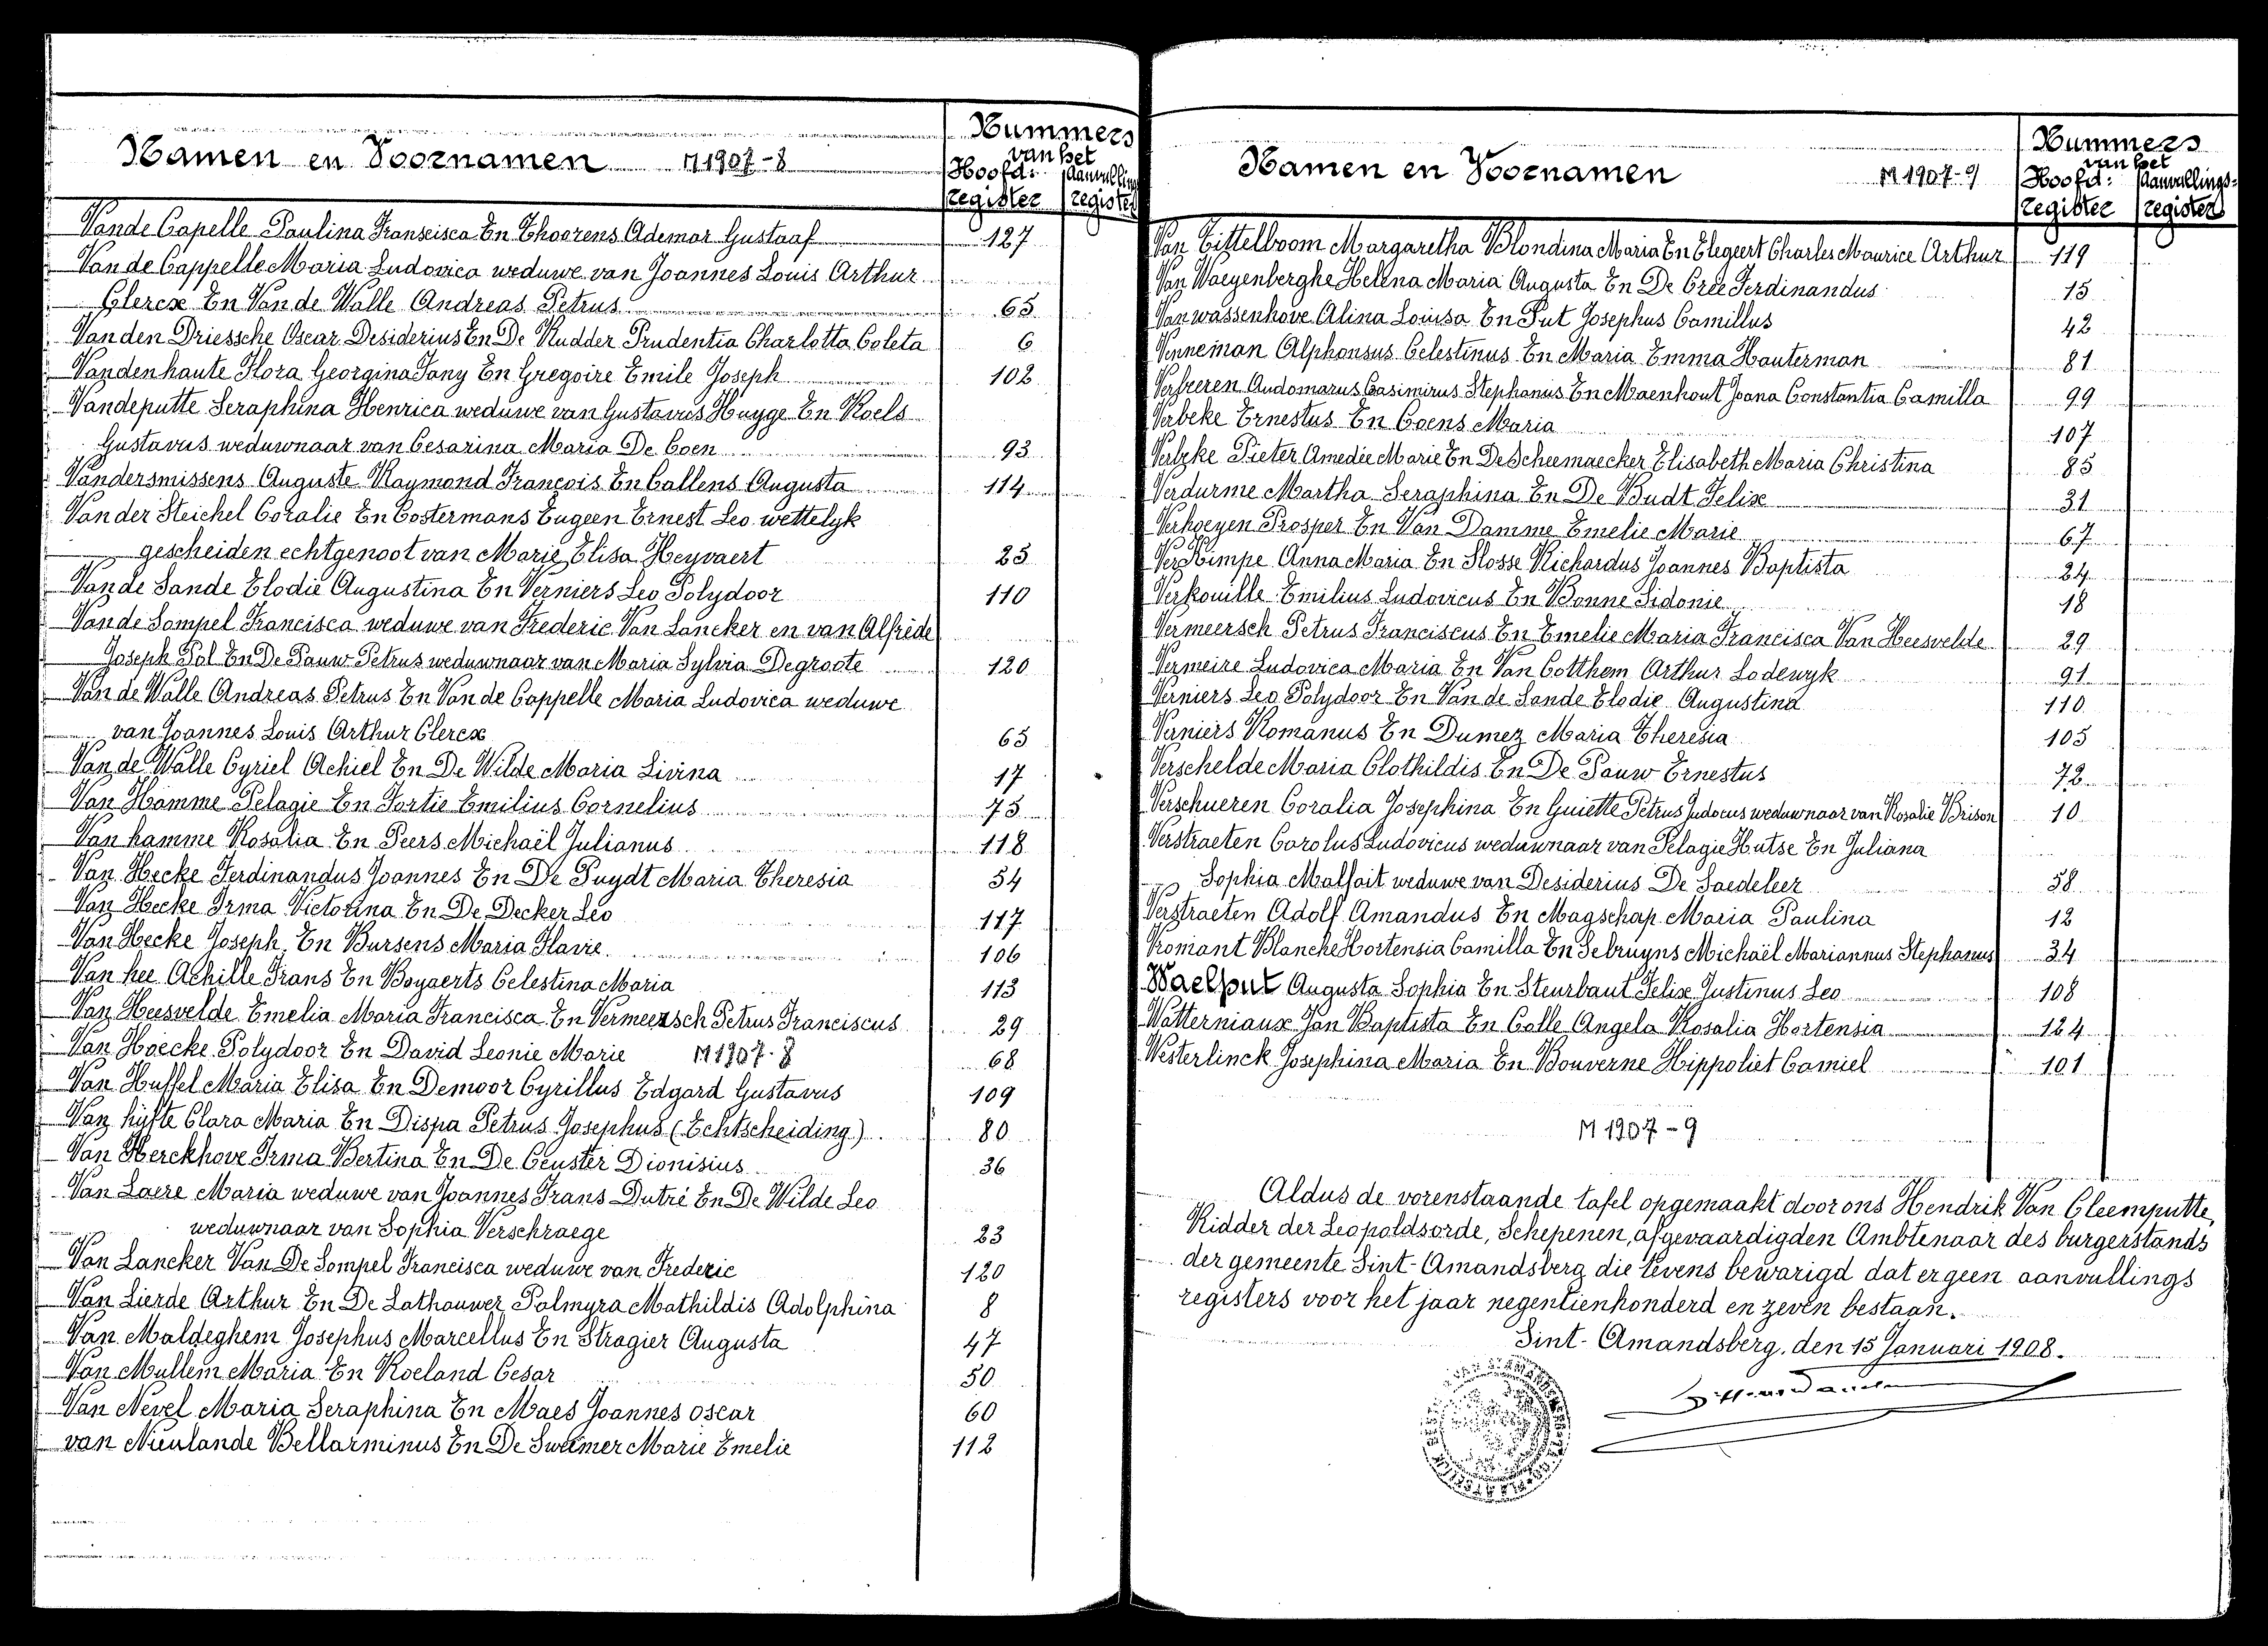 Namen en Voornamen M 1907-8
Nummers
van het
Hoofd: Aanvulling
register register
Van de Capelle Paulina Fransisca En Thoorens Ademar Gustaaf 127
Van de Cappelle Maria Ludovica weduwe van Joannes Louis Arthur
Clercx En Van de Walle Andreas Petrus 65
Van den Driessche Oscar Desiderius En De Rudder Prudentia Charlotta Coleta 6
Vandenhaute Flora Georgina Fany En Gregoire Emile Joseph 102
Vandeputte Seraphina Henrica weduwe van Gustavus Huyge En Roels
Gustavus weduwnaar van Cesarina Maria De Coen 93
Vandersmissens Auguste Raymond François En Callens Augusta 114
Van der Steichel Coralie En Costermans Eugeen Ernest Leo wettelyk
gescheiden echtgenoot van Marie Elisa Heyvaert 25
Van de Sande Elodie Augustina En Verniers Leo Polydoor 110
Van de Sompel Francisca weduwe van Frederic Van Lancker en van Alfrède
Joseph Pol En De Pauw Petrus weduwnaar van Maria Sylvia Degroote 120
Van de Walle Andreas Petrus En Van de Cappelle Maria Ludovica weduwe
van Joannes Louis Arthur Clercx 65
Van de Walle Cyriel Achiel En De Wilde Maria Livina 17
Van Hamme Pelagie En Fortie Emilius Cornelius 75
Van hamme Rosalia En Peers Michaël Julianus 118
Van Hecke Ferdinandus Joannes En De Puydt Maria Theresia 54
Van Hecke Irma Victorina En De Decker Leo 117
Van Hecke Joseph En Bursens Maria Flavie 106
Van hee Achille Frans En Boyaerts Celestina Maria 113
Van Heesvelde Emelia Maria Francisca En Vermeersch Petrus Franciscus 29
Van Hoecke Polydoor En David Leonie Marie M 1907-8 68
Van Huffel Maria Elisa En Demoor Cyrillus Edgard Gustavus 109
Van hijfte Clara Maria En Dispa Petrus Josephus (Echtscheiding) 80
Van Herckhove Irma Bertina En De Ceuster Dionisius 36
Van Laere Maria weduwe van Joannes Frans Dutré En De Wilde Leo
weduwnaar van Sophia Verschraege 23
Van Lancker Van De Sompel Francisca weduwe van Frederic 120
Van Lierde Arthur En De Lathouwer Palmyra Mathildis Adolphina 8
Van Maldeghem Josephus Marcellus En Stragier Augusta 47
Van Mullem Maria En Roeland Cesar 50
Van Nevel Maria Seraphina En Maes Joannes oscar 60
van Nieulande Bellarminus En De Sweemer Marie Emelie 112
Namen en Voornamen M 1907-9
Nummers
van het
Hoofd: Aanvullings-
register register
Van Tittelboom Margaretha Blondina Maria En Elegeert Charles Maurice Arthur 119
Van Waeyenberghe Helena Maria Augusta En De Cree Ferdinandus 15
Van wassenhove Alina Louisa En Put Josephus Camillus 42
Venneman Alphonsus Celestinus En Maria Emma Hauterman 81
Verbeeren Audomarus Casimirus Stephanus En Maenhout Joana Constantia Camilla 99
Verbeke Ernestus En Coens Maria 107
Verbeke Pieter Amedée Marie En De Scheemaecker Elisabeth Maria Christina 85
Verdurme Martha Seraphina En De Budt Felix 31
Verhoeyen Prosper En Van Damme Emelie Marie 67
Verkimpe Anna Maria En Slosse Richardus Joannes Baptista 24
Verkouille Emilius Ludovicus En Bonne Sidonie 18
Vermeersch Petrus Franciscus En Emelie Maria Francisca Van Heesvelde 29
Vermeire Ludovica Maria En Van Cotthem Arthur Lodewyk 91
Verniers Leo Polydoor En Van de Sande Elodie Augustina 110
Verniers Romanus En Dumez Maria Theresia 105
Verschelde Maria Clothildis En De Pauw Ernestus 72
Verschueren Coralia Josephina En Guiette Petrus Judocus weduwnaar van Rosalie Brison 10
Verstraeten Carolus Ludovicus weduwnaar van Pelagie Hutse En Juliana
Sophia Malfait weduwe van Desiderius De Saedeleer 58
Verstraeten Adolf Amandus En Magschap Maria Paulina 12
Vromant Blanche Hortensia Camilla En Sebruyns Michaël Mariannus Stephanus 34
Waelput Augusta Sophia En Steurbaut Felix Justinus Leo 108
Watterniaux Jan Baptista En Colle Angela Rosalia Hortensia 124
Westerlinck Josephina Maria En Bouverne Hippoliet Camiel 101
M 1907-9
Aldus de vorenstaande tafel opgemaakt door ons Hendrik Van Cleemputte,
Ridder der Leopoldsorde, Schepenen, afgevaardigden Ambtenaar des burgerstands
der gemeente Sint-Amandsberg die tevens bewarigd dat er geen aanvullings
registers voor het jaar negentienhonderd en zeven bestaan.
Sint-Amandsberg, den 15 Januari 1908.